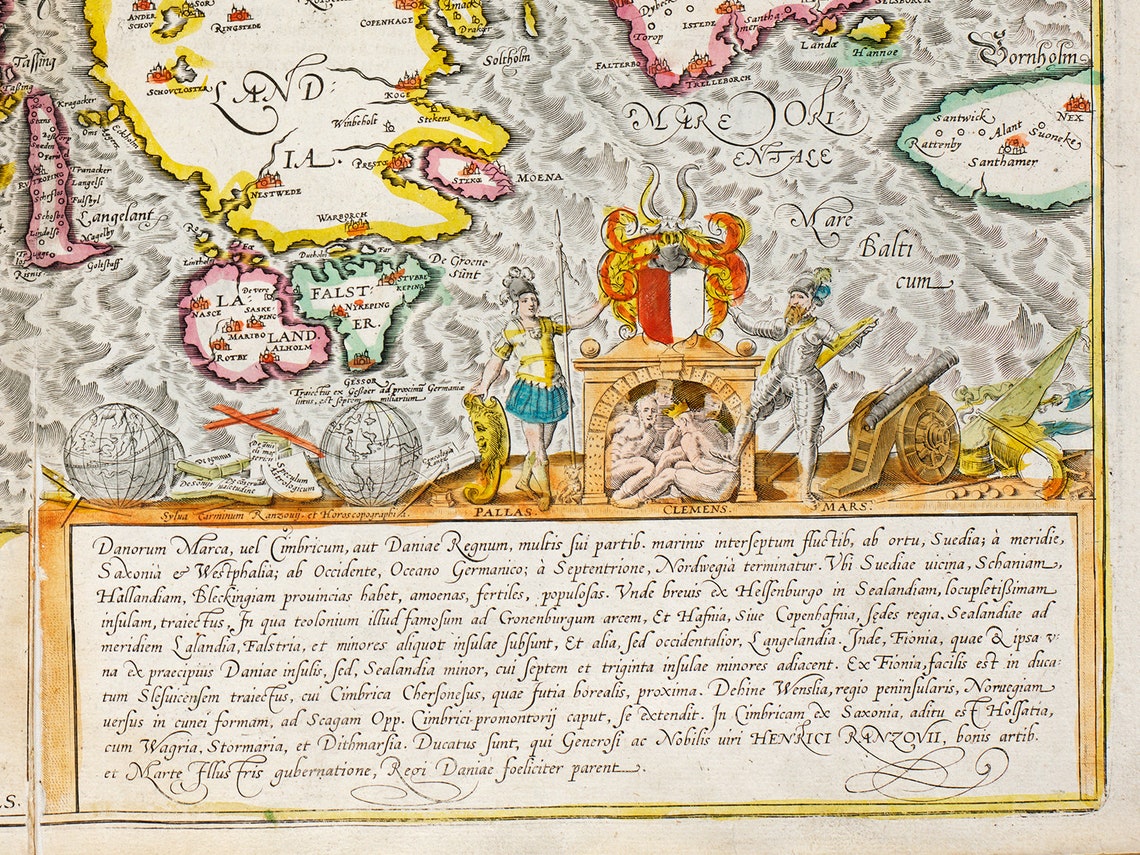 ANDER SCHOV
SOR
RINGSTEDE
COPENHAGE
Amack
Draker
Dybeck
ISTEDE
Santha mer
SELSBORCH
Torop
Landæ
Hannoe
FALTERBO
TRELLEBORCH
Bornholm
Tassing
Soltholm
SCHOVCLOSTER
LAND
KOGE
Kragacker
Winbeholt
Stekens
MARE ORI
ENTALE
Santwick
NEX
Alant
Suoneke
Rattenby
Santhamer
IA.
PRESTO
STEKE
MOENA
Tranacker
Langelsi
Fulsbyl
NESTWEDE
Langelant
WARBORCH
Mare
Balti
cum
Lindelse
Magelby
Golstaff
Risnis
De Groene
Sunt
LA
NASCE
SASKE PING
MARIBO
LAND.
ROTBY
ALHOLM
FALST
STVBBE KEPING
NYKEPING
ER.
GESSOR
Traiectus ex Gessoer ad proximũ Germaniæ
litus, est septem miliarium
De somnus
Speculum
Astrologicum
Genealogia
Sylva Carminum Ranzovij. et Horoscopographia.
PALLAS.
CLEMENS.
MARS.
Danorum Marca, uel Cimbricum, aut Daniae Regnum, multis sui partib. marinis interseptum fluctib, ab ortu, Suedia; à meridie,
Saxonia & Westphalia; ab Occidente, Oceano Germanico; à Septentrione, Nordwegia terminatur. Vbi Suediae uicina, Schaniam,
Hallandiam, Bleckingiam prouincias habet, amoenas, fertiles, populosas. Vnde breuis ex Helsenburgo in Sealandiam, locupletißimam
insulam, traiectus, In qua teolonium illud famosum ad Cronenburgum arcem, Et Hafnia, Siue Copenhafnia, sedes regia. Sealandiae ad
meridiem Lalandia, Falstria, et minores aliquot insulae subsunt, Et alia, sed occidentalior, Langelandia. Inde, Fionia, quae & ipsa v-
na ex praecipuis Daniae insulis, sed, Sealandia minor, cui septem et triginta insulae minores adiacent. Ex Fionia, facilis est in duca-
tum Slesuicensem traiectus, cui Cimbrica Chersonesus, quae futia borealis, proxima. Dehine Wenslia, regio peninsularis, Noruegiam
versus in cunei formam, ad Scagam Opp. Cimbrici promontorij caput, se extendit. In Cimbricam ex Saxonia, aditu est Holsatia,
cum Wagria, Stormaria, et Dithmarsia. Ducatus sunt, qui Generosi ac Nobilis uiri HENRICI RANZOVII, bonis artib.
et Marte Illustris gubernatione, Regi Daniae foeliciter parent.